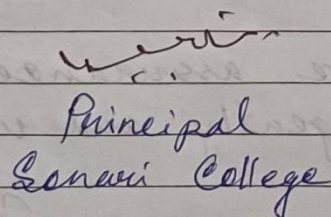 Principal
Sonari College